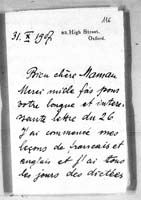 116
83, High Street,
Oxford.
31. X 1907.
Bien chère Maman
Merci mille fois pour
votre longue et intéres
sante lettre du 26
J'ai commencé mes
leçons de francais et
anglais et j'ai tous
les jours des dictées